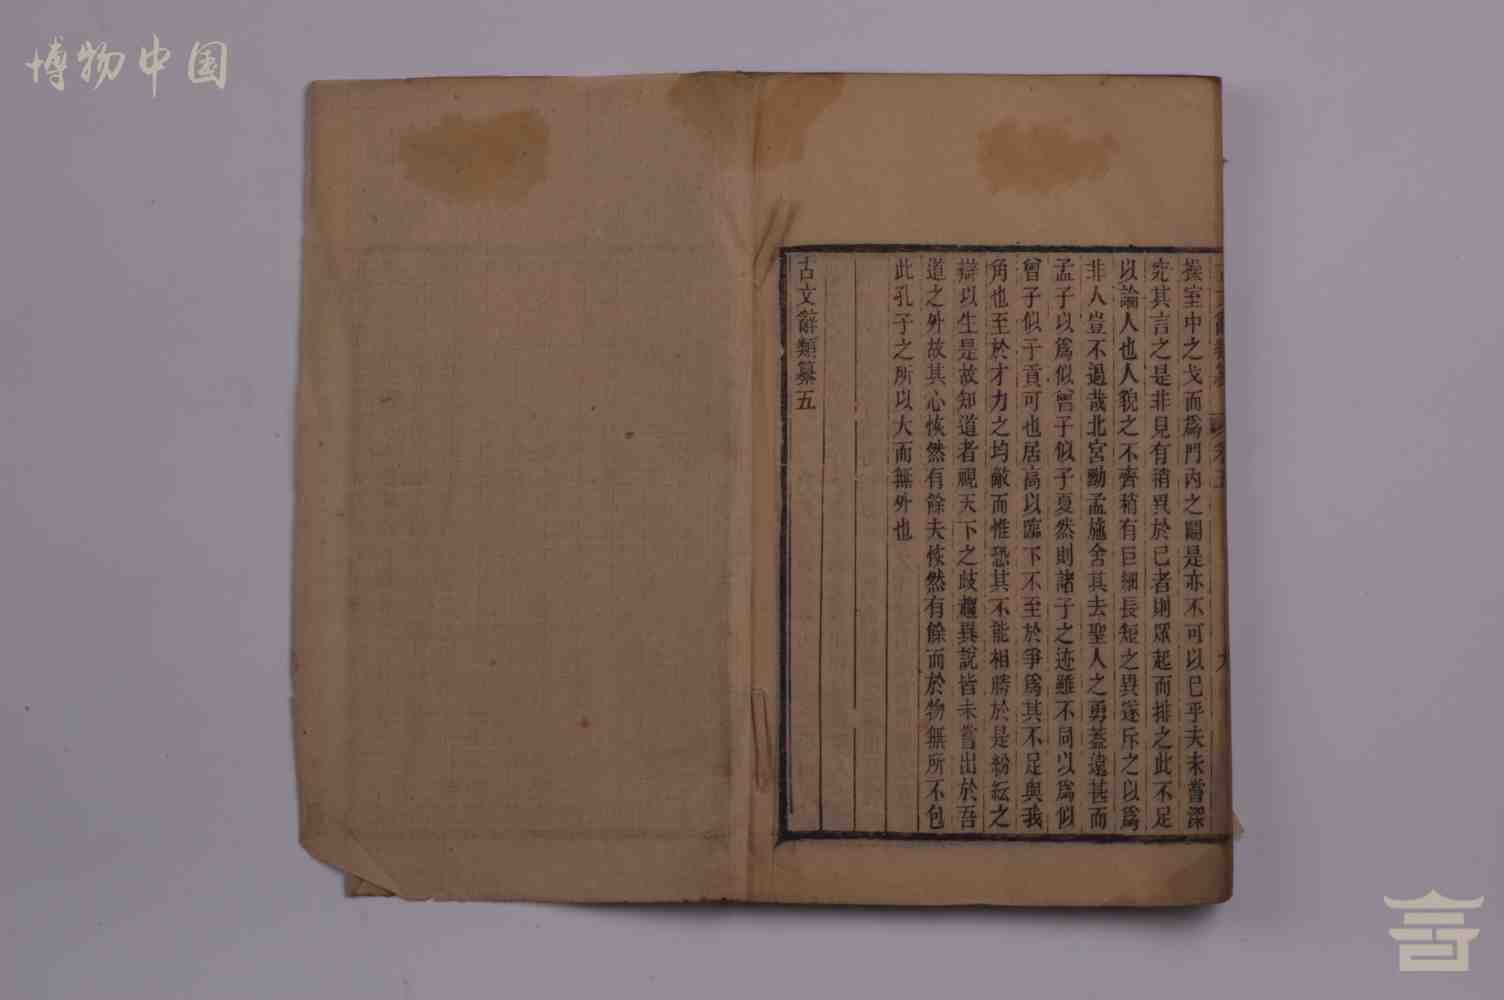 博物中国
古文辭類纂 卷五 九
操室中之戈而爲門內之鬭是亦不可以已乎夫未嘗深
究其言之是非見有稍異於己者則眾起而排之此不足
以論人也人貌之不齊稍有巨細長短之異遂斥之以爲
非人豈不過哉北宮黝孟施舍其去聖人之勇蓋遠甚而
孟子以爲似曾子似子夏然則諸子之迹雖不同以爲似
曾子似子貢可也居高以臨下不至於爭爲其不足與我
角也至於才力之均敵而惟恐其不能相勝於是紛紜之
辯以生是故知道者視天下之歧趨異說皆未嘗出於吾
道之外故其心恢然有餘夫恢然有餘而於物無所不包
此孔子之所以大而無外也
古文辭類纂五